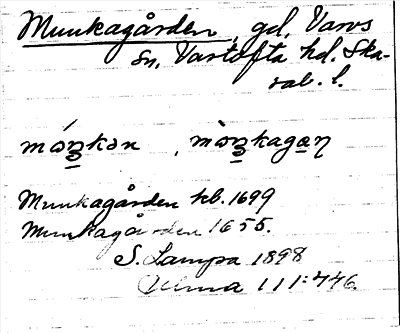 Munkagården, gd, Varvs
sn, Vartofta hd. Ska-
rab. l.
Munkagården hb. 1699
Munkagården 1655.
S. Lampa 1898
Ulma 111:446.